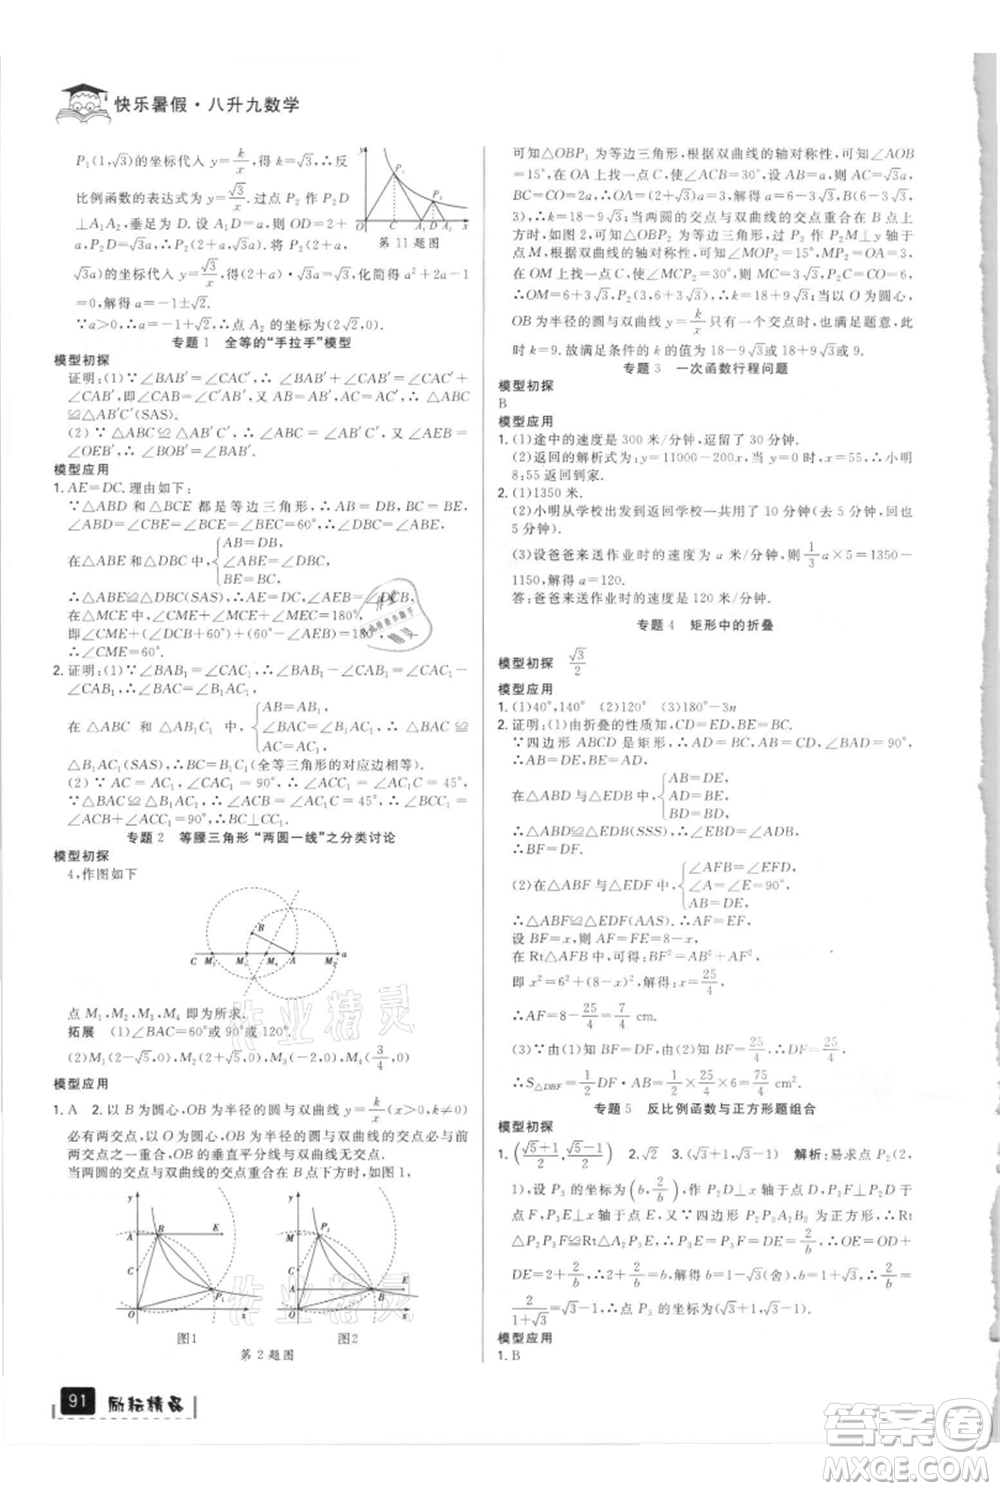 快乐暑假·八升九数学
P₁(1,√3)的坐标代入 y=k/x,得 k=√3,∴反
比例函数的表达式为 y=√3/x. 过点 P₂ 作 P₂D
⊥A₁A₂,垂足为 D. 设 A₁D=a,则 OD=2+
a,P₂D=√3a,∴P₂(2+a,√3a). 将 P₂(2+a,
√3a)代入 y=√3/x,得(2+a)·√3a=√3,化简得 a²+2a-1
=0,解得 a=-1±√2.
∵a>0,∴a=-1+√2,∴点 A₂ 的坐标为(2√2,0).
第 11 题图
专题 1 全等的“手拉手”模型
模型初探
证明:(1)∵∠BAB′=∠CAC′,∴∠BAB′+∠CAB′=∠CAC′
+∠CAB′,即∠CAB=∠C′AB′. 又∵AB=AB′,AC=AC′,
∴△ABC≌△AB′C′(SAS).
(2)∵△ABC≌△AB′C′,∴∠ABE=∠OB′E. 又∵∠AEB=
∠OEB′,∴∠BOB′=∠BAB′.
模型应用
1. AE=DC. 理由如下:
∵△ABD 和△BCE 都是等边三角形,∴AB=DB,BC=BE,
∠ABD=∠CBE=∠BCE=∠BEC=60°,∴∠ABE=∠DBC.
在△ABE 和△DBC 中,{AB=DB,
∠ABE=∠DBC,
BE=BC,
∴△ABE≌△DBC(SAS),∴AE=DC,∠AEB=∠DCB.
在△MCE 中,∵∠CME+∠MCE+∠MEC=180°,
即∠CME+(∠DCB+60°)+(60°-∠AEB)=180°,
∴∠CME=60°.
2. 证明:(1)∵∠BAB₁=∠CAC₁,∴∠BAB₁+∠CAB₁=
∠CAB₁+∠CAC₁,∴∠BAC=∠B₁AC₁,
在 △ABC 和 △AB₁C₁ 中, {AB=AB₁,
∠BAC=∠B₁AC₁,
AC=AC₁,
∴△ABC≌
△AB₁C₁(SAS),∴BC=B₁C₁(全等三角形的对应边相等).
(2)∵AC=AC₁,∠CAC₁=90°,∴∠ACC₁=∠AC₁C=45°.
∵△BAC≌△B₁AC₁,∴∠BCA=∠B₁C₁A=45°,∴∠BCC₁=
∠BCA+∠ACC₁=90°,∴BC⊥CC₁.
专题 2 等腰三角形“两圆一线”之分类讨论
模型初探
4,作图如下
B
C M₁ M₃ M₄ A M₂ a
点 M₁,M₂,M₃,M₄ 即为所求.
拓展 (1)∠BAC=60°或 90°或 120°
(2)M₁(2-√5,0),M₂(2+√5,0),M₃(-2,0),M₄(3/4,0)
模型应用
1. A 2. 以 B 为圆心,OB 为半径的圆与双曲线 y=k/x(x>0,k≠0)
必有两交点,以 O 为圆心,OB 为半径的圆与双曲线也必有
两交点,OB 的垂直平分线与双曲线必无交点.
当两圆的交点与双曲线的交点重合在 B 点下方时,如图 1,
图1
图2
第 2 题图
可知△OBP₁ 为等边三角形,根据双曲线的轴对称性,可知∠AOB
=15°,在 OA 上找一点 C,使∠ACB=30°,设 AB=a,则 AC=√3a,
BC=OC=2a,∴(2+√3)a=6,解得 a=6-3√3,B(6-3√3,
6),∴k=6×(6-3√3)=36-18√3;当两圆的交点与双曲线的交点重合在 B 点
上方时,如图 2,可知△OBP₂ 为等边三角形,过点 P₂ 作 P₂M⊥y 轴于
点 M,根据双曲线的轴对称性,可知∠MOP₂=15°,∠AOB=15°,
在 OM 上找一点 C,使∠MCP₂=30°,
∴OM=6+3√3,P₂(3,6+3√3),∴k=18+9√3;当以 O 为圆心,
OB 为半径的圆与双曲线 y=k/x 只有一个交点时,也满足题意,此时
k=9. 故满足条件的 k 的值为 18-9√3或 18+9√3或 9.
专题 3 一次函数行程问题
模型初探
B
模型应用
1. (1)途中的速度是 300 米/分钟,逗留了 30 分钟.
(2)返回的解析式为:y=11000-200x,当 y=0 时,x=55,∴小明
8:55 返回到家.
2. (1)1350 米.
(2)小明从学校出发到返回学校一共用了 10 分钟(去 5 分钟,回也
5 分钟).
(3)设爸爸来送作业时的速度为 a 米/分钟,则 1/3a×5=1350-
1150,解得 a=120.
答:爸爸来送作业时的速度为 120 米/分钟.
专题 4 矩形中的折叠
模型初探 √3/2
模型应用
1. (1)40°,140° (2)120° (3)180°-3n
2. 证明:(1)由折叠的性质知,CD=ED,BE=BC.
∵四边形 ABCD 是矩形,∴AD=BC,AB=CD,∠BAD=90°,
∴AB=DE,BE=AD.
在△ABD 与△EDB 中,{AB=DE,
AD=BE,
BD=BD,
∴△ABD≌△EDB(SSS),∴∠EBD=∠ADB,
∴BF=DF.
(2)在△ABF 与△EDF 中,{∠AFB=∠EFD,
∠A=∠E=90°,
AB=DE,
∴△ABF≌△EDF(AAS).∴AF=EF.
设 BF=x,则 AF=FE=8-x.
在 Rt△AFB 中,可得 BF²=AB²+AF²,
即 x²=6²+(8-x)²,解得 x=25/4.
∴AF=8-25/4=7/4 cm.
(3)∵BF=DF=25/4,AB=6,∠BAD=90°,
∴S△DBF=1/2DF·AB=1/2×25/4×6=75/4 cm².
专题 5 反比例函数与正方形题组合
模型初探
1. (√5+1/2,√5-1/2) 2. √2 3. (√3+1,√3-1) 解析:易求点 P₂(2,
1),设 P₃ 的坐标为(b,2/b),作 P₂D⊥x 轴于点 D,P₃F⊥P₂D 于点
F,P₃E⊥x 轴于点 E,∵四边形 A₂B₂P₂P₃ 为正方形,∴Rt
△P₂P₃F≌Rt△A₂P₃E,∴P₃E=P₃F=DE=2/b,∴OE=OD+
DE=2+2/b,∴2+2/b=b,解得 b=1-√3(舍)或 b=1+√3,∴2/b=
2/(1+√3)=√3-1,∴点 P₃ 的坐标为(√3+1,√3-1).
模型应用
1. B
91 励耘精品
作业精灵
答案卷
MXQE.COM